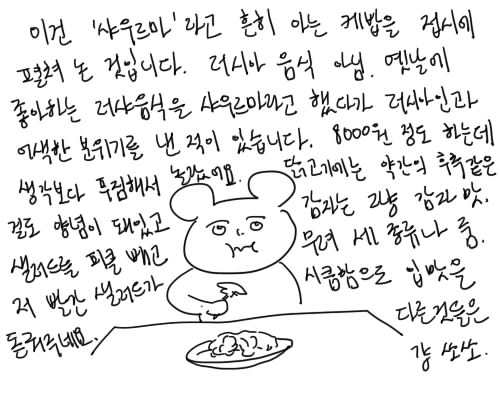 이건 '샤우르마'라고 흔히 아는 케밥을 접시에
펼쳐 논 것입니다. 러시아 음식 아님. 옛날에
좋아하는 러샤음식을 샤우르마라고 했다가 러시아인과
어색한 분위기를 낸 적이 있습니다. 8000원 정도 하는데
생각보다 푸짐해서 놀랐어요. 닭고기에는 약간의 후추같은
걸로 양념이 돼있고 감자는 그냥 감자 맛.
샐러드를 피클 빼고 무려 세 종류나 줌.
저 빨간 샐러드가 시큼함으로 입맛을
돋궈주네요. 다른것들은
걍 쏘쏘.